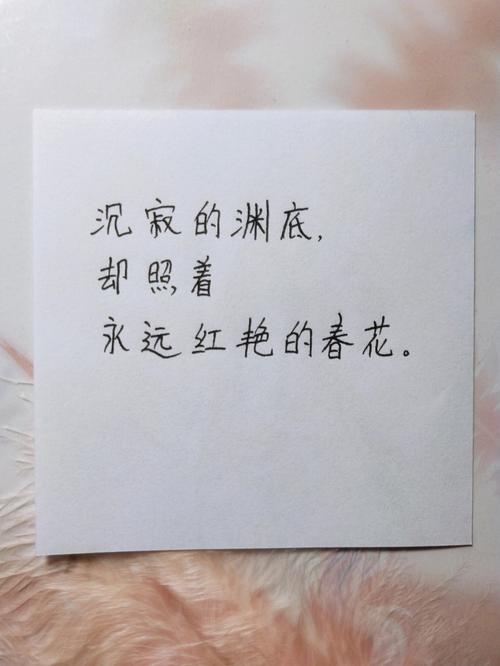 沉寂的渊底，
却照着
永远红艳的春花。